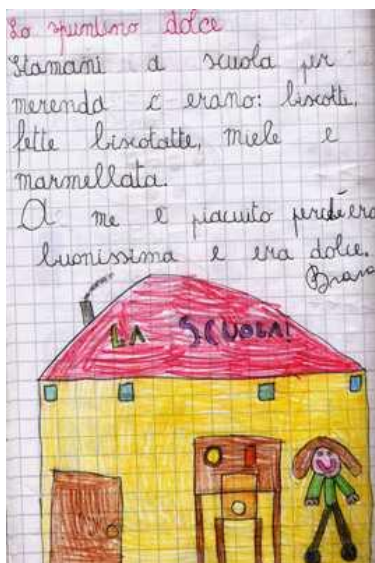 Lo spuntino dolce
Stamani a scuola per
merenda c erano: biscotti,
fette biscotatte, miele e
marmellata.
A me e piaciuto perché era
buonissima e era dolce.
Brava
LA SCUOLA!